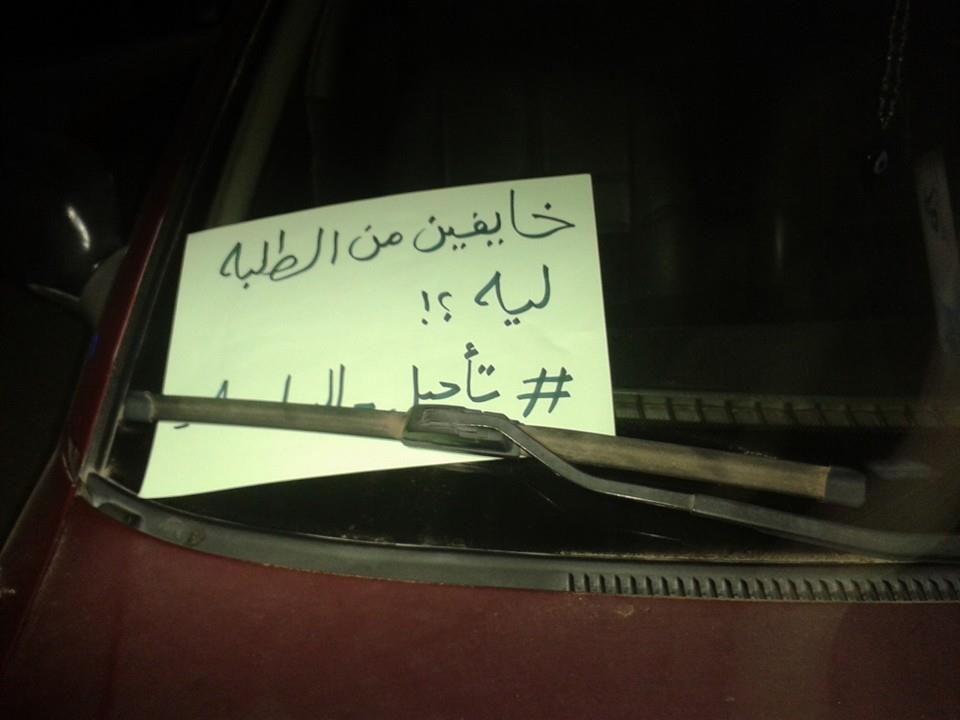 خايفين من الطلبه
ليه ؟!
# تأجيل